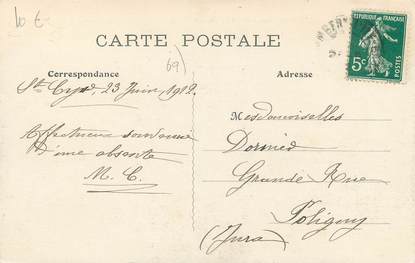 10 €
CARTE POSTALE
69)
Correspondance
Adresse
RÉPUBLIQUE FRANÇAISE
5c
POSTES
St Cyr, 23 Juin, 1912.
Affectueux souvenir
d'une absente
M. C.
Mesdemoiselles
Dormier
Grande Rue
Poligny
(Jura)